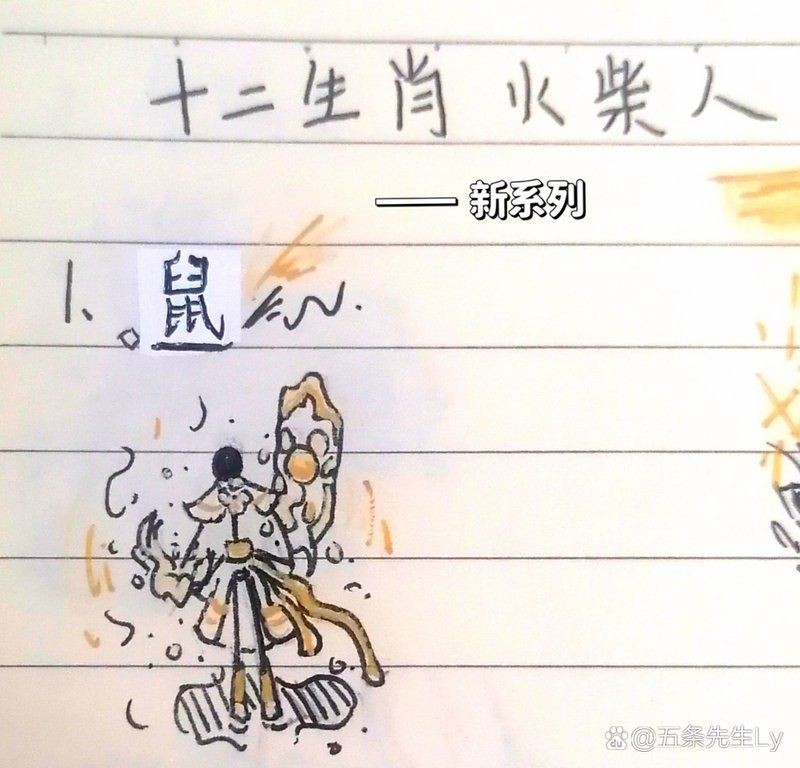 十二生肖 火柴人
—— 新系列
1、鼠
@五条先生Ly